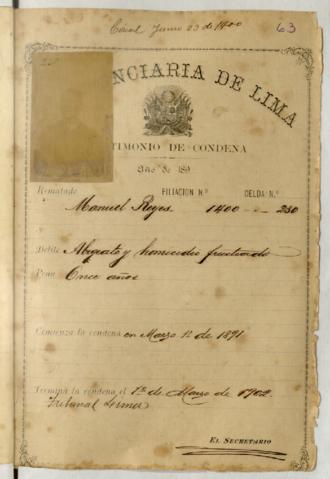 Casol Junio 23 de 1900
63
NCIARIA DE LIMA
TIMONIO DE CONDENA
Año de 189
Rematado FILIACION N.º CELDA N.º
Manuel Reyes 1400 - - 230
Delito Abigeato y homicidio frustrado
Pena Once años
Comienza la condena en Marzo 12 de 1891
Termina la condena el 12 de Marzo de 1902.
Tribunal
EL SECRETARIO